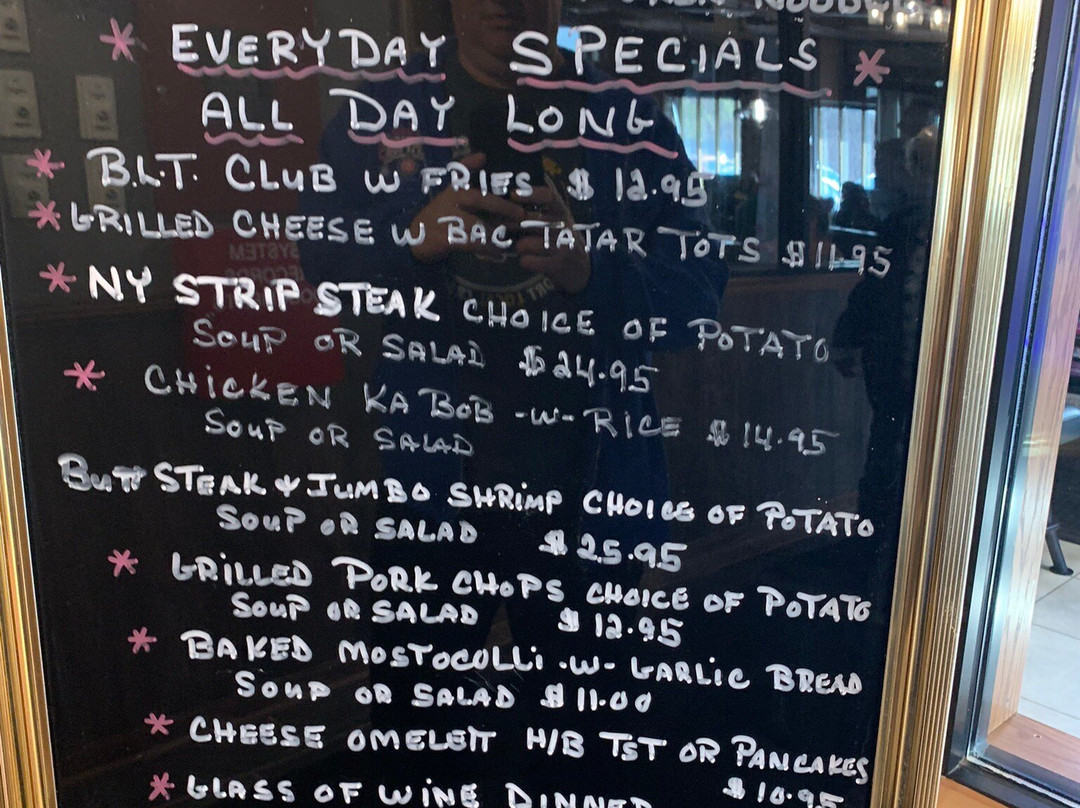 NOODLE
* EVERYDAY SPECIALS *
ALL DAY LONG
* B.L.T. CLUB W FRIES $ 12.95
* GRILLED CHEESE W BAC TATAR TOTS $11.95
* NY STRIP STEAK CHOICE OF POTATO
SOUP OR SALAD $24.95
* CHICKEN KA BOB -W- RICE $14.95
SOUP OR SALAD
BUTT STEAK & JUMBO SHRIMP CHOICE OF POTATO
SOUP OR SALAD $25.95
* GRILLED PORK CHOPS CHOICE OF POTATO
SOUP OR SALAD $12.95
* BAKED MOSTOCOLLI -W- GARLIC BREAD
SOUP OR SALAD $11.00
* CHEESE OMELETT H/B TST OR PANCAKES
$10.95
* GLASS OF WINE DINNER